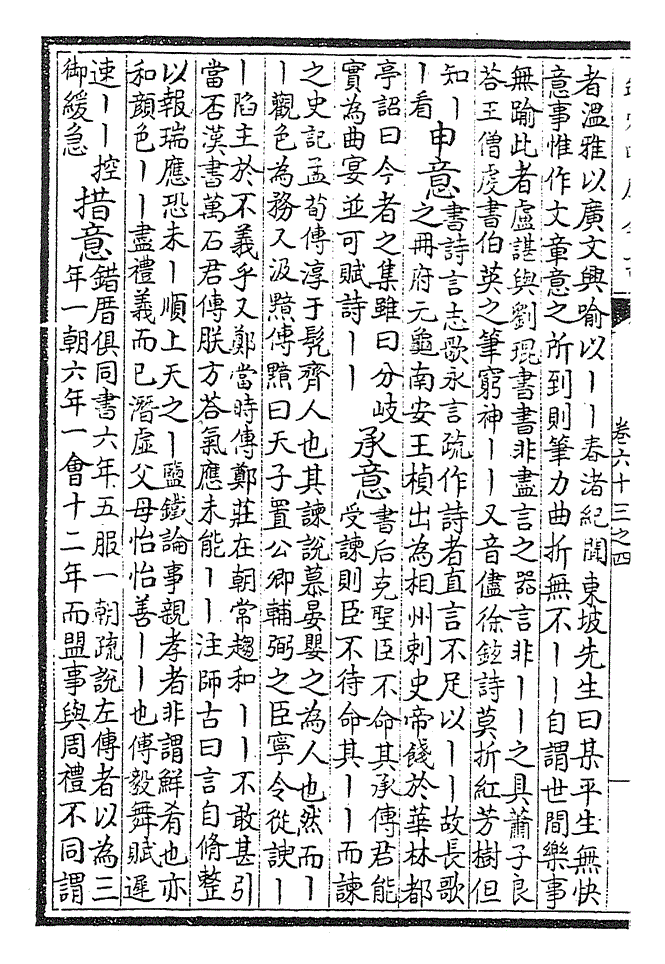 者溫雅以廣文興喻以丨丨春渚紀聞東坡先生曰某平生無快
意事惟作文章意之所到則筆力曲折無不丨丨自謂世間樂事
無踰此者盧諶與劉琨書書非盡言之器言非丨丨之具蕭子良
荅王僧虔書伯英之筆窮神丨丨又音儘徐鉉詩莫折紅芳樹但
知丨
丨看
申意
書詩言志歌永言疏作詩者直言不足以丨丨故長歌
之冊府元龜南安王楨出為相州刺史帝餞於華林都
亭詔曰今者之集雖曰分岐
實為曲宴並可賦詩丨丨
承意
書后克聖臣不命其承傳君能
受諫則臣不待命其丨丨而諫
之史記孟荀傳淳于髡齊人也其諫說慕晏嬰之為人也然而丨
丨觀色為務又汲黯傳黯曰天子置公卿輔弼之臣寧令從諛丨
丨陷主於不義乎又鄭當時傳鄭莊在朝常趨和丨丨不敢甚引
當否漢書萬石君傳朕方荅氣應未能丨丨注師古曰言自脩整
以報瑞應恐未丨順上天之丨鹽鐵論事親孝者非謂鮮肴也亦
和顏色丨丨盡禮義而已潛虛父母怡怡善丨丨也傅毅舞賦遲
速丨丨控
御緩急
措意
錯厝俱同書六年五服一朝疏說左傳者以為三
年一朝六年一會十二年而盟事與周禮不同謂
卷六十三之四